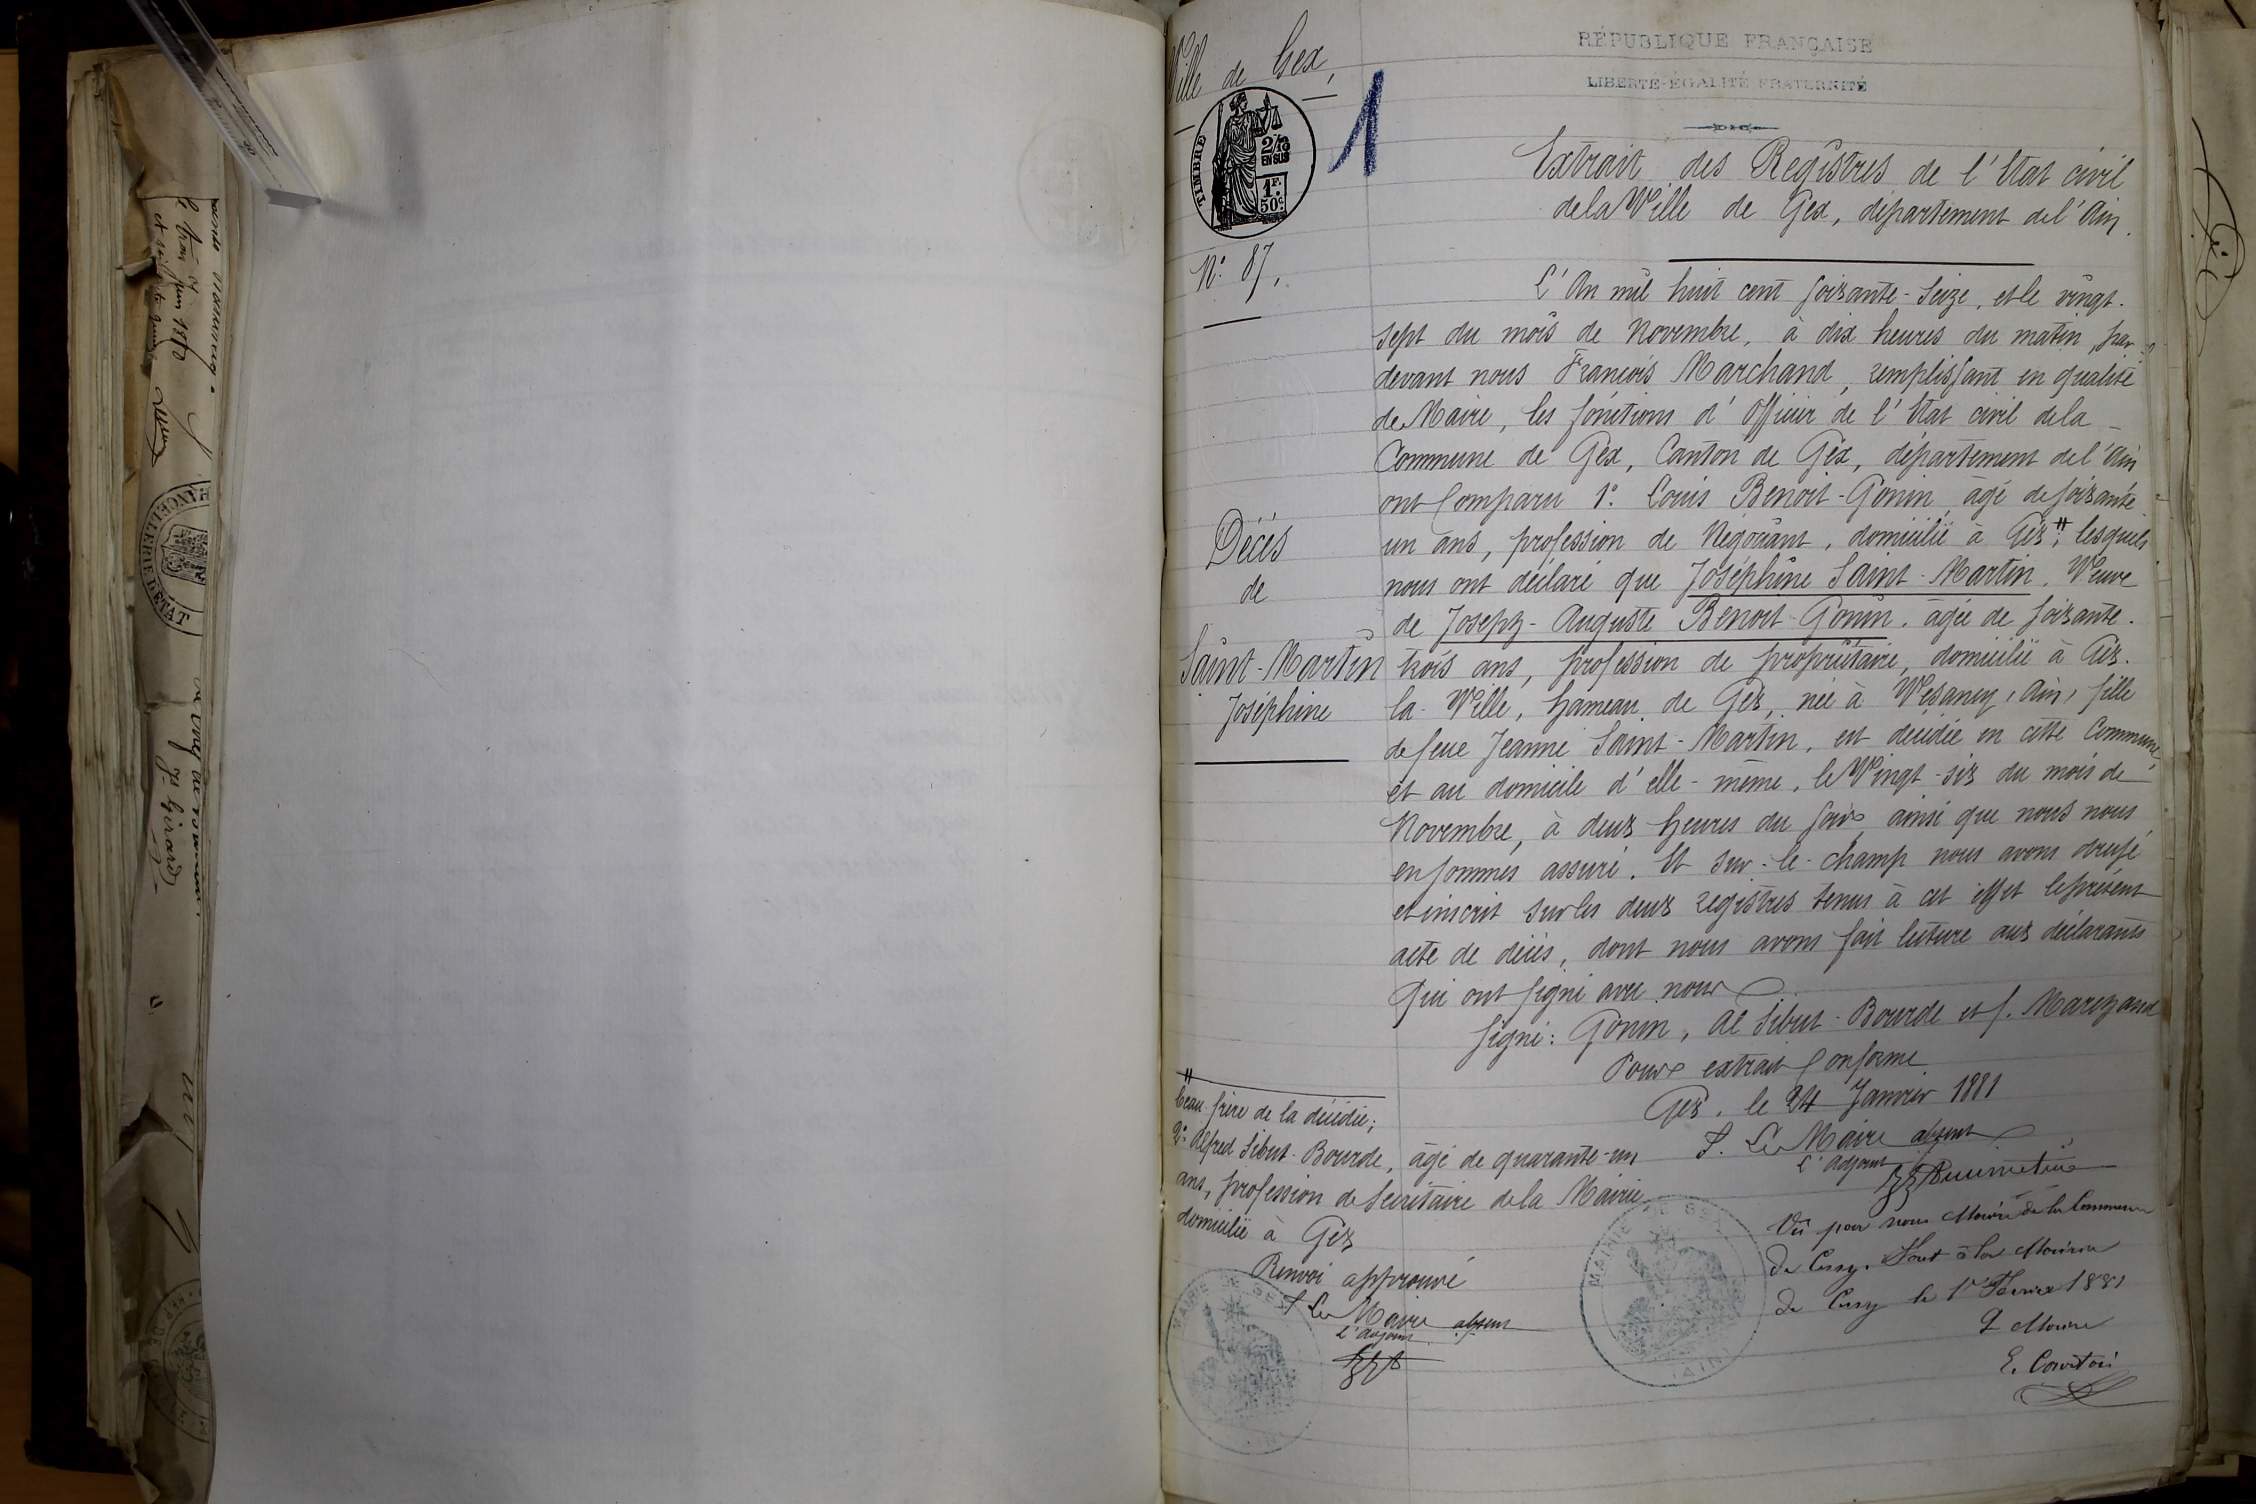 Ville de Gex,
TIMBRE
2/10
EN SUS
1F.
50c.
1
N° 87.
Décès
de
Saint-Martin
Joséphine
RÉPUBLIQUE FRANÇAISE
LIBERTÉ-ÉGALITÉ FRATERNITÉ
Extrait des Registres de l'Etat civil
de la Ville de Gex, département de l'Ain.
L'An mil huit cent soixante-seize, et le vingt-
sept du mois de Novembre, à dix heures du matin, par-
devant nous François Marchand, remplissant en qualité
de Maire, les fonctions d'Officier de l'Etat civil de la
Commune de Gex, Canton de Gex, département de l'Ain
ont Comparu 1° Louis Benoit-Gonin, âgé de soixante
un ans, profession de Négociant, domicilié à Gex, # lesquels
nous ont déclaré que Joséphine Saint-Martin, Veuve
de Joseph-Auguste Benoit-Gonin, âgée de soixante-
trois ans, profession de propriétaire, domicilié à Gex-
la-Ville, hameau de Gex, née à Vesancy, Ain, fille
de feue Jeanne Saint-Martin, est décédée en cette Commune,
et au domicile d'elle-même, le Vingt-six du mois de
Novembre, à deux heures du soir, ainsi que nous nous
en sommes assuré. Et sur-le-champ nous avons dressé
et inscrit sur les deux registres tenus à cet effet le présent
acte de décès, dont nous avons fait lecture aux déclarants
Qui ont signé avec nous
Signé: Gonin, Al Sibut-Bourde et f. Marchand
Pour extrait Conforme
Gex, le 24 Janvier 1881
P. Le Maire absent
l'adjoint
# beau-frère de la décédée;
2° Alfred Sibut-Bourde, âgé de quarante-un
ans, profession de Secrétaire de la Mairie
domicilié à Gex
Renvoi approuvé
P Le Maire absent
l'adjoint
MAIRIE DE GEX
(AIN)
MAIRIE DE GEX
Vu par nous Maire de la Commune
de Cussy. Fait à la Mairie
de Cussy le 1er Février 1881
Le Maire
E. Courtois
CHANCELLERIE D'ETAT
Jn Girard